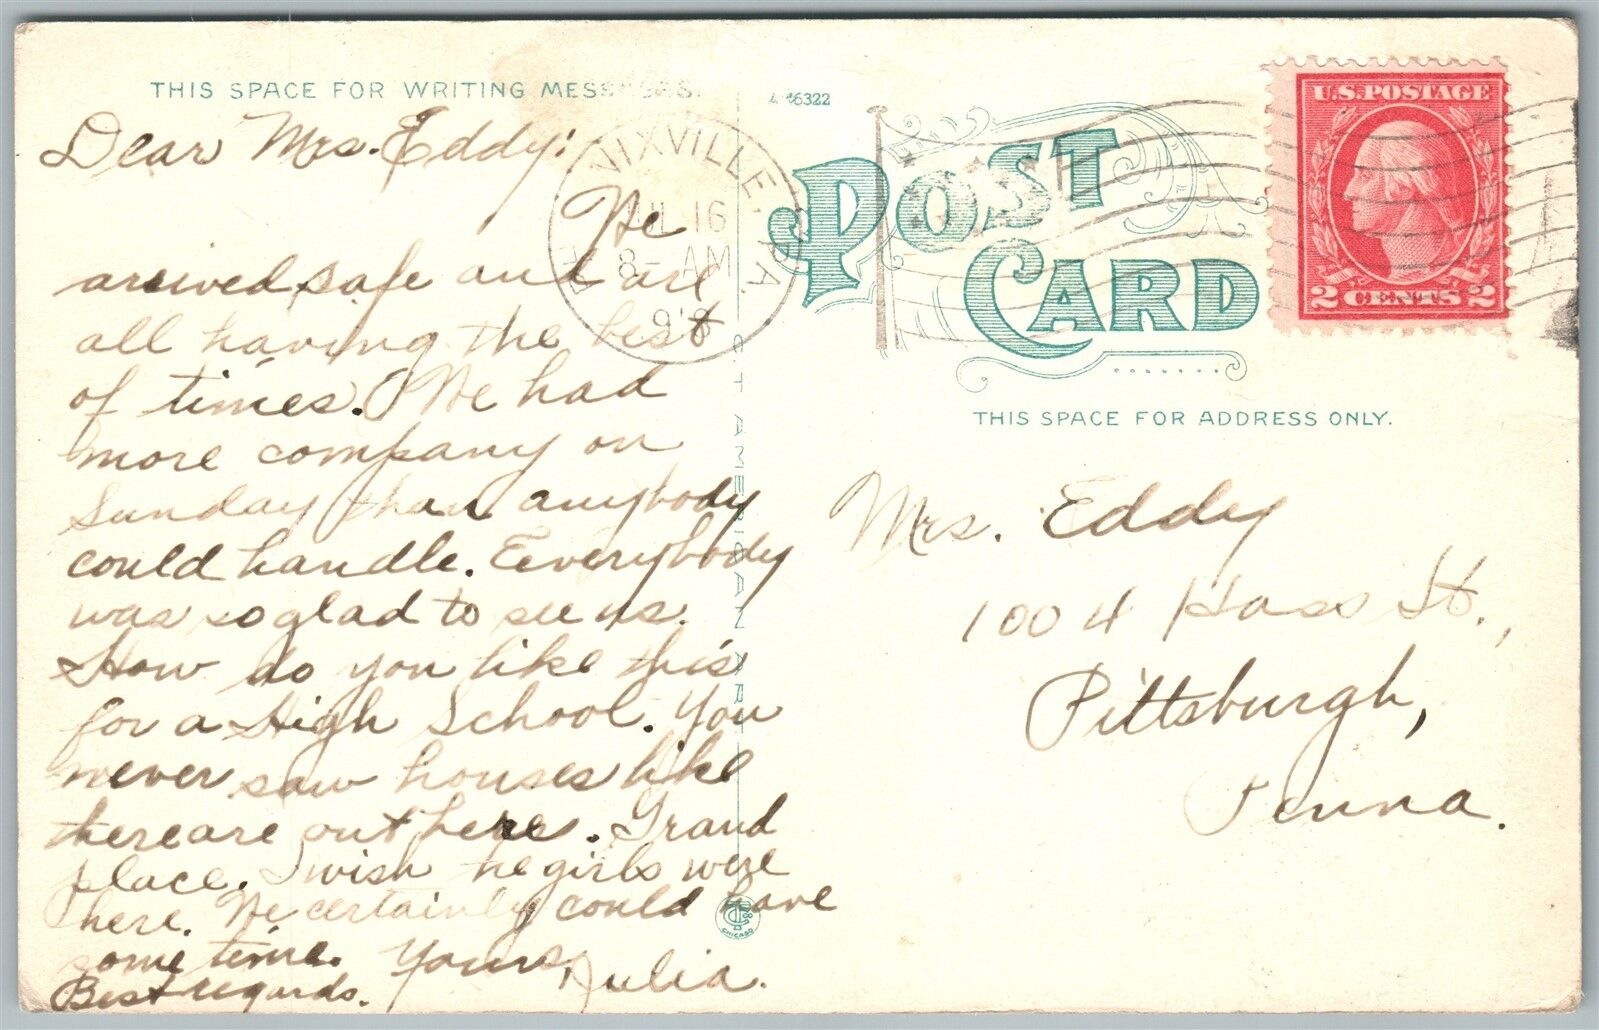 THIS SPACE FOR WRITING MESSAGES.
A-46322
Dear Mrs. Eddy:
We
arrived safe and are
all having the best
of times. We had
more company on
Sunday than anybody
could handle. Eeverybody
was so glad to see us.
How do you like this
for a High School. You
never saw houses like
there are out here. Grand
place. I wish the girls were
here. We certainly could have
some time. Yours, Julia.
Best regards.
NIXVILLE, PA.
JUL 16
8- AM
POST
CARD
U.S. POSTAGE
2 CENTS 2
THIS SPACE FOR ADDRESS ONLY.
Mrs. Eddy
1004 Hass St.,
Pittsburgh,
Penna.
C T AMERICAN ART
CHICAGO